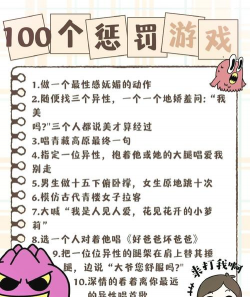 100个惩罚游戏
1.做一个最性感妩媚的动作
2.随便找三个异性,一个一个地矫羞问:“我
美
吗?"三个人都说美才算经过
3.唱青藏高原最终一句
4.指定一位异性,抱着他或她的大腿唱爱我
别走
5.男生做十五下俯卧撑,女生原地跳十次
6.模仿古代青楼女子拉客
7.大喊“我是人见人爱,花见花开的小萝
莉”
8.选一个人对着他唱《好爸爸坏爸爸》
9.把一位异性的腿架在肩上替其捶
腿,边说“大爷您舒服吗?”
10.深情的看着离你最远
的异性唱首歌
来打我啊